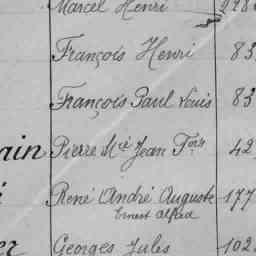 Marcel Henri 228
François Henri 83
François Paul Louis 83
ain Pierre Mie Jean Fois 42
René André Auguste 177
Ernest Alfred
er Georges Jules 102